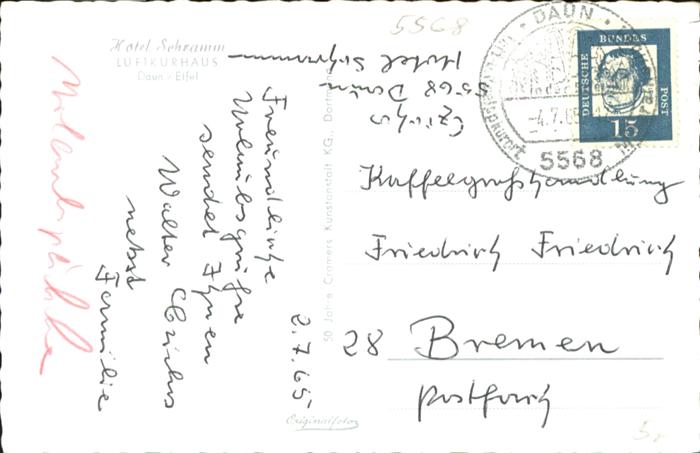 5568
Hotel Schramm
LUFTKURHAUS
Daun - Eifel
Czichos
5568 Daun
Hotel Schramm
DAUN
-4.7.65
5568
DEUTSCHE
BUNDES
POST
15
Freundliche
Urlaubsgrüße
sendet Ihnen
Walter Czichos
nebst
Familie
2.7.65
50 Jahre Cramers Kunstanstalt KG., Dortmund
Originalfoto
Kaffeegroßhandlung
Friedrich Friedrich
28 Bremen
Postfach